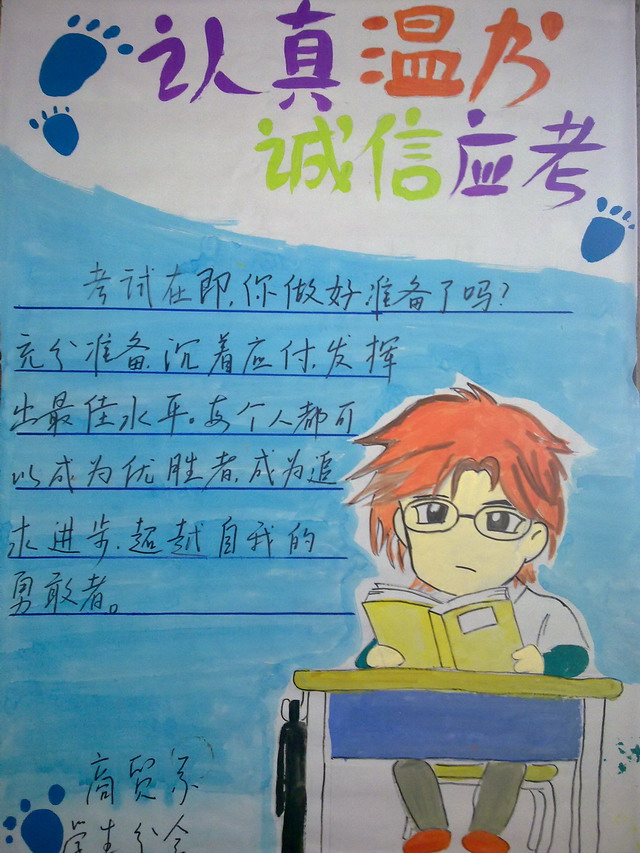 认真温书
诚信应考
考试在即,你做好准备了吗?
充分准备,沉着应付,发挥
出最佳水平。每个人都可
以成为优胜者,成为追
求进步,超越自我的
勇敢者。
商贸系
学生分会